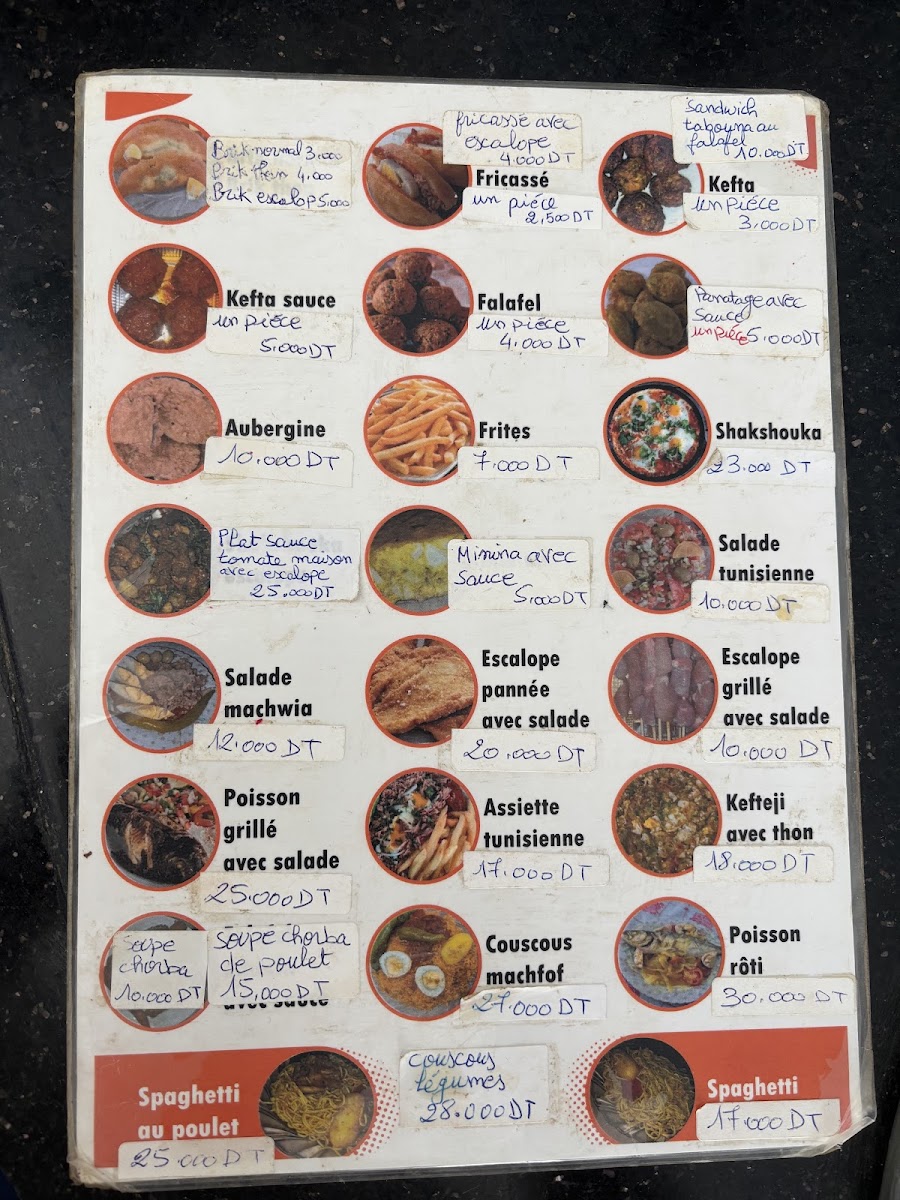 Brik normal 3,000
Brik thon 4,000
Brik escalop 5,000
fricassé avec
escalope
4.000 DT
Fricassé
un piéce
2,500 DT
Sandwich
tabouna au
falafel
10.000 DT
Kefta
un piéce
3,000 DT
Kefta sauce
un piéce
5.000 DT
Falafel
un piéce
4.000 DT
avec
Sauce
un piéce 5.000 DT
Aubergine
10.000 DT
Frites
7.000 DT
Shakshouka
23.000 DT
Plat sauce
tomate maison
avec escalope
25.000 DT
Minina avec
sauce
5,000 DT
Salade
tunisienne
10.000 DT
Salade
machwia
12.000 DT
Escalope
pannée
avec salade
20.000 DT
Escalope
grillé
avec salade
10.000 DT
Poisson
grillé
avec salade
25.000 DT
Assiette
tunisienne
17.000 DT
Kefteji
avec thon
18.000 DT
Soupe
chorba
10.000 DT
Soupe chorba
de poulet
15,000 DT
avec sauce
Couscous
machfof
27.000 DT
Poisson
rôti
30.000 DT
Spaghetti
au poulet
25.000 DT
couscous
légumes
28.000 DT
Spaghetti
17.000 DT